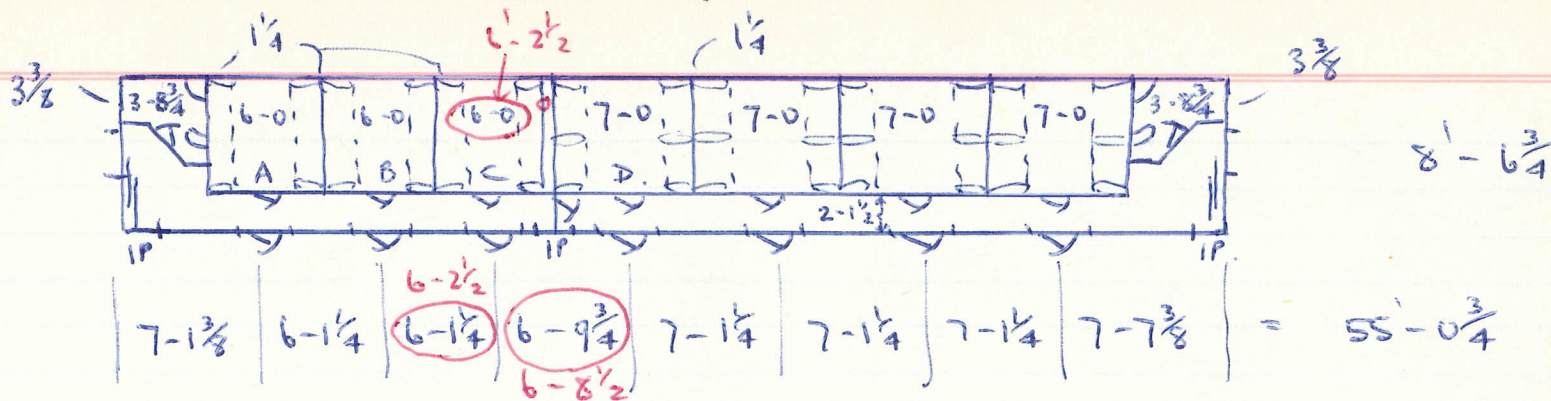 1¼ 6'-2½ 1¼
3⅜ 3⅜
3-8¾ 6-0 6-0 6-0 7-0 7-0 7-0 7-0 3-8¾
T T
8'-6¾
A B C D.
2-1½
1P 1P 1P.
6-2½
7-1⅜ 6-1¼ 6-1¼ 6-9¾ 7-1¼ 7-1¼ 7-1¼ 7-7⅜ = 55'-0¾
6-8½